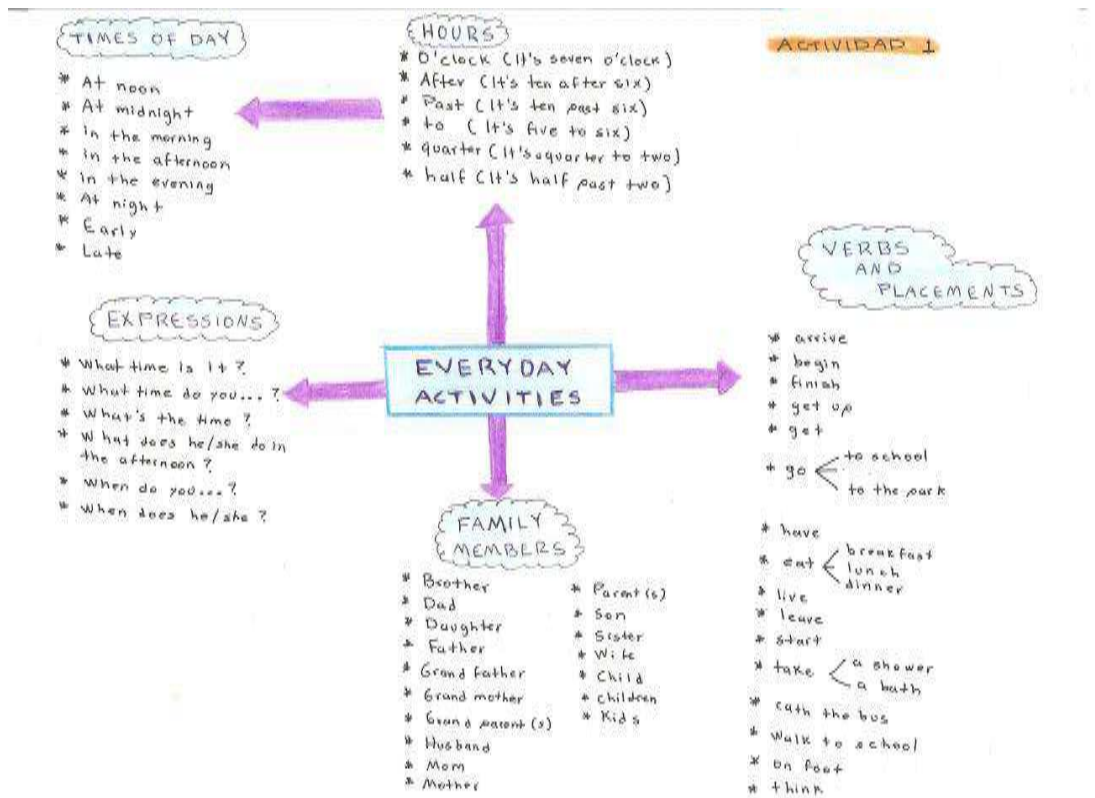 TIMES OF DAY
* At noon
* At midnight
* in the morning
* in the afternoon
* in the evening
* At night
* Early
* Late
HOURS
* O'clock (It's seven o'clock)
* After (It's ten after six)
* Past (It's ten past six)
* to (It's five to six)
* quarter (It's a quarter to two)
* half (It's half past two)
ACTIVIDAD 1
EXPRESSIONS
* What time is it?
* What time do you...?
* What's the time?
* What does he/she do in
the afternoon?
* When do you...?
* When does he/she?
EVERYDAY
ACTIVITIES
VERBS
AND
PLACEMENTS
* arrive
* begin
* finish
* get up
* get
* go
to school
to the park
* have
* eat
breakfast
lunch
dinner
* live
* leave
* start
* take
a shower
a bath
* cath the bus
* walk to school
* on foot
* think
FAMILY
MEMBERS
* Brother
* Dad
* Daughter
* Father
* Grand father
* Grand mother
* Grand parent (s)
* Husband
* Mom
* Mother
* Parent (s)
* Son
* Sister
* Wife
* Child
* children
* Kids